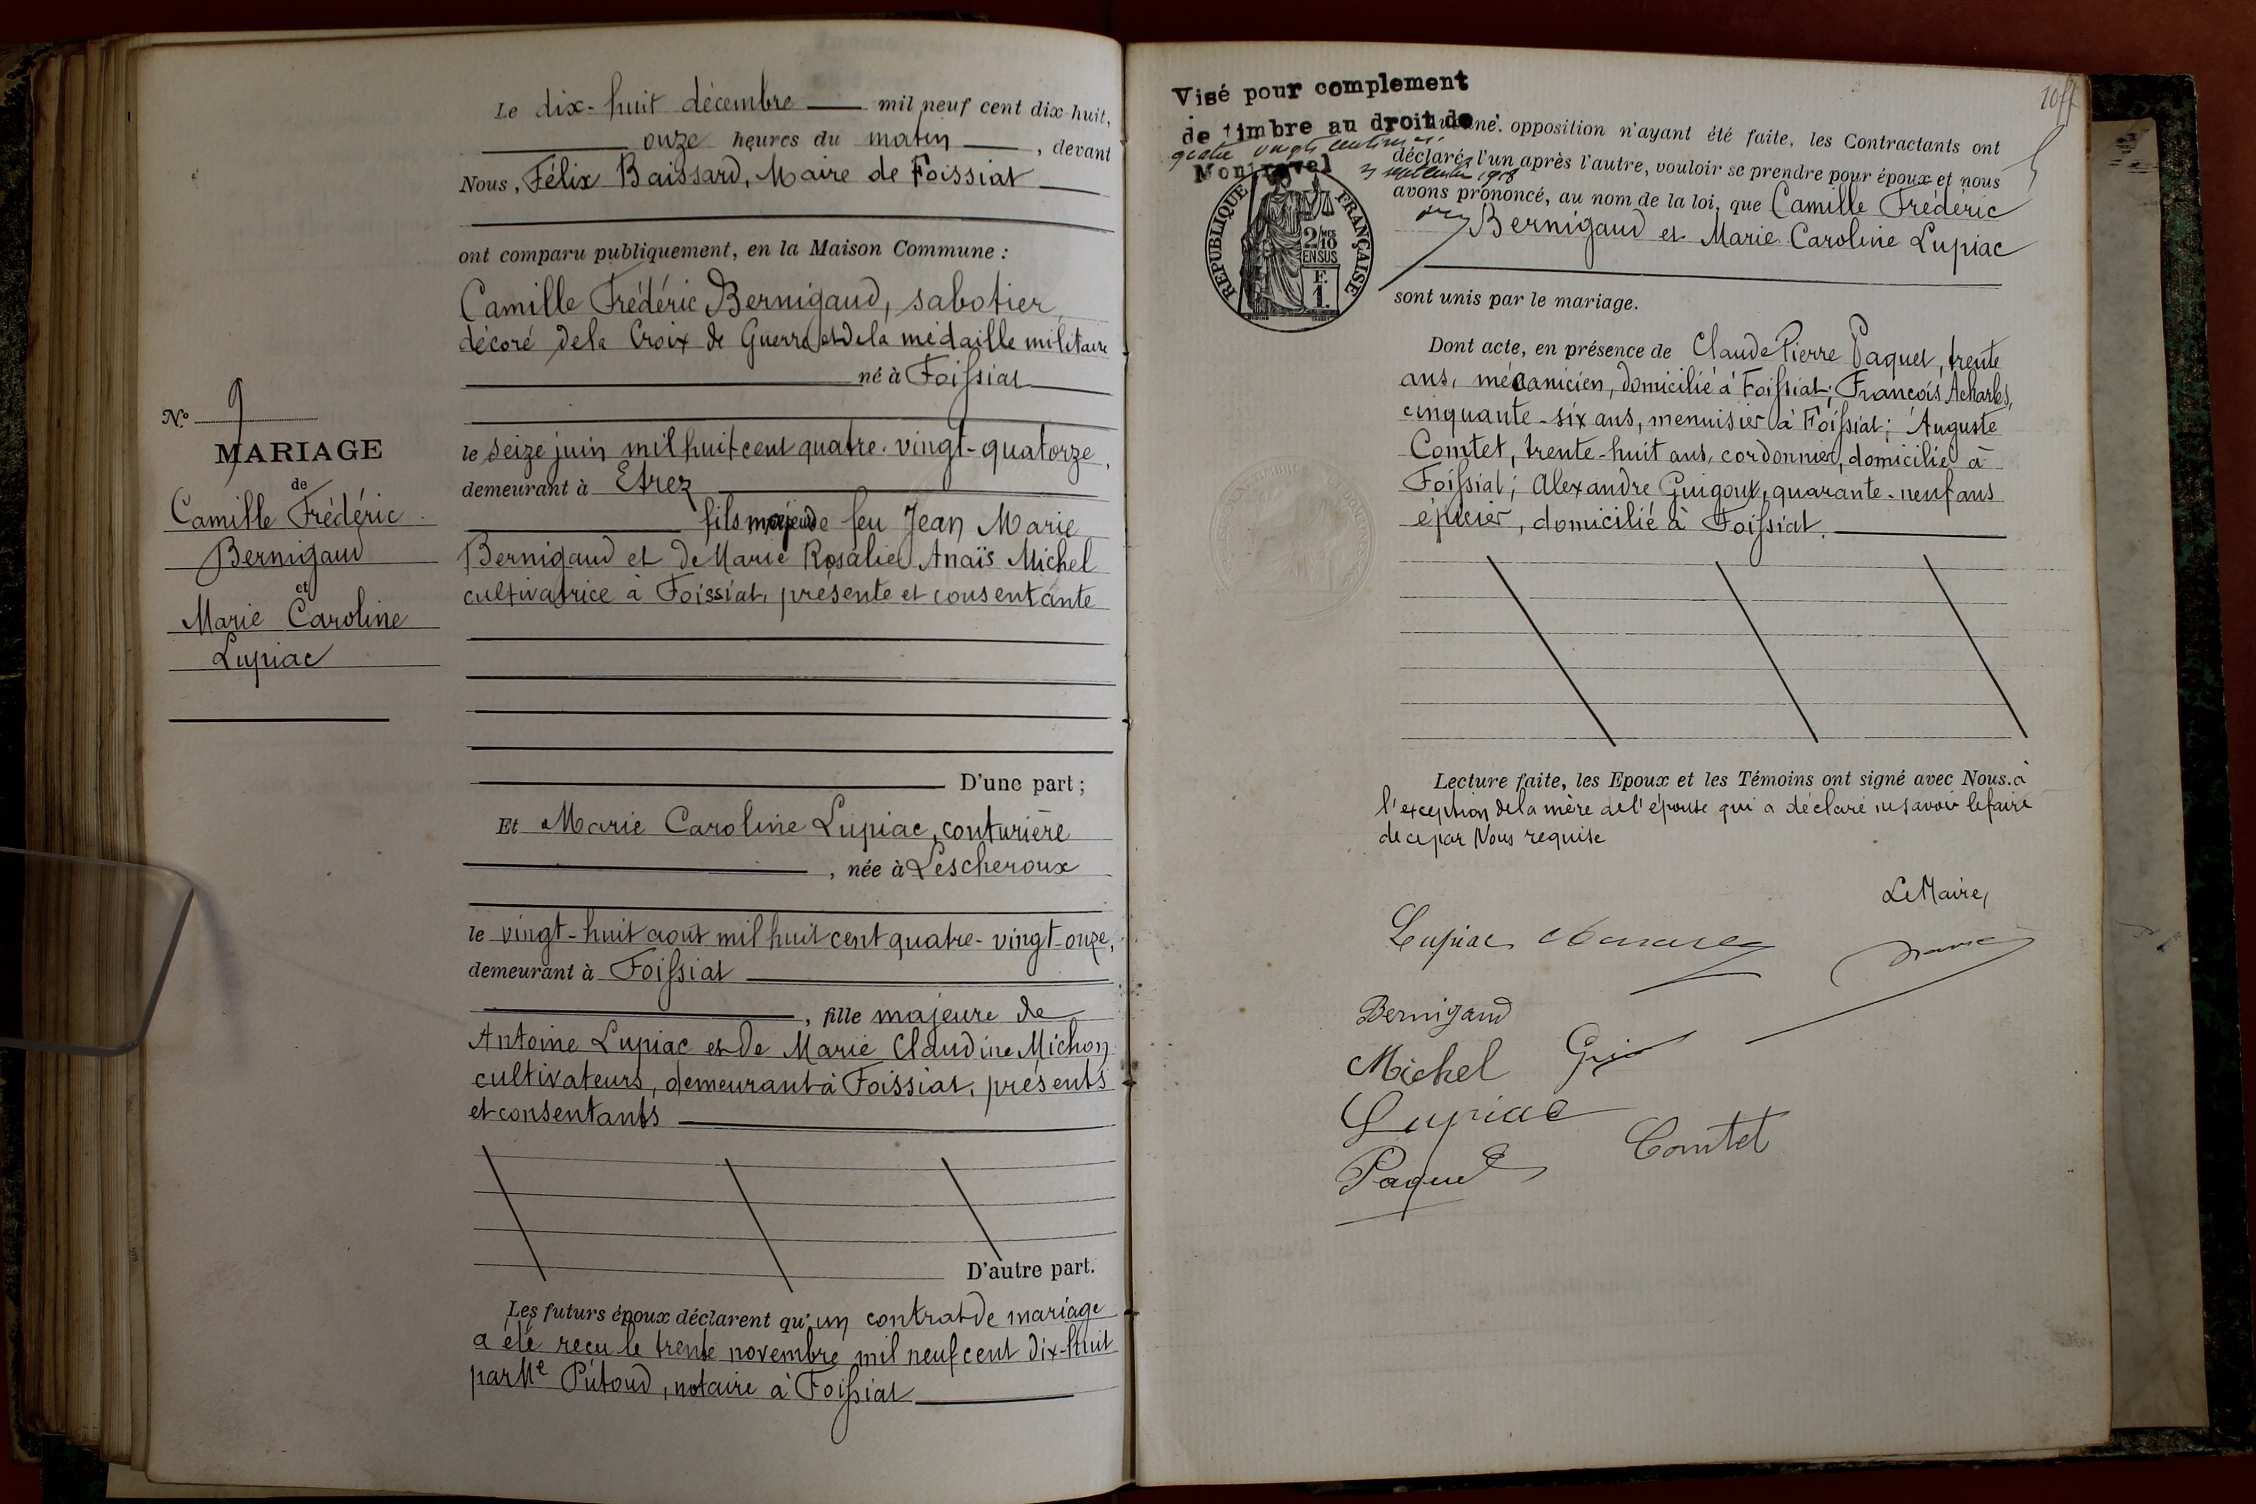 Le dix-huit décembre mil neuf cent dix-huit,
onze heures du matin, devant
Nous, Félix Baissard, Maire de Foissiat
ont comparu publiquement, en la Maison Commune :
Camille Frédéric Bernigaud, sabotier
décoré de la Croix de Guerre et de la médaille militaire
né à Foissiat
le seize juin mil huit cent quatre-vingt-quatorze,
demeurant à Etrez
fils majeur de feu Jean Marie
Bernigaud et de Marie Rosalie Anaïs Michel
cultivatrice à Foissiat, présente et consentante
D'une part ;
Et Marie Caroline Lupiac, couturière
, née à Lescheroux
le vingt-huit août mil huit cent quatre-vingt-onze,
demeurant à Foissiat
, fille majeure de
Antoine Lupiac et de Marie Claudine Michon
cultivateurs, demeurant à Foissiat, présents
et consentants
D'autre part.
Les futurs époux déclarent qu'un contrat de mariage
a été reçu le trente novembre mil neuf cent dix-huit
par Me Pútoud, notaire à Foissiat
No 9
MARIAGE
de
Camille Frédéric
Bernigaud
et
Marie Caroline
Lupiac
Visé pour complement
de timbre au droit de
quatre vingts centimes
Montrevel
septembre 1918
REPUBLIQUE FRANÇAISE
2/10 MES
EN SUS
F.
1.
opposition n'ayant été faite, les Contractants ont
déclaré, l'un après l'autre, vouloir se prendre pour époux et nous
avons prononcé, au nom de la loi, que Camille Frédéric
Bernigaud et Marie Caroline Lupiac
sont unis par le mariage.
Dont acte, en présence de Claude Pierre Paquet, trente
ans, mécanicien, domicilié à Foissiat; François Acharles,
cinquante-six ans, menuisier à Foissiat; Auguste
Comtet, trente-huit ans, cordonnier, domicilié à
Foissiat; Alexandre Guigoux, quarante-neuf ans
épicier, domicilié à Foissiat.
Lecture faite, les Epoux et les Témoins ont signé avec Nous. à
l'exception de la mère de l'épouse qui a déclaré ne savoir le faire
de ce par Nous requise
Le Maire,
Lupiac
Bernigaud
Michel
Lupiac
Comtet
Paquet